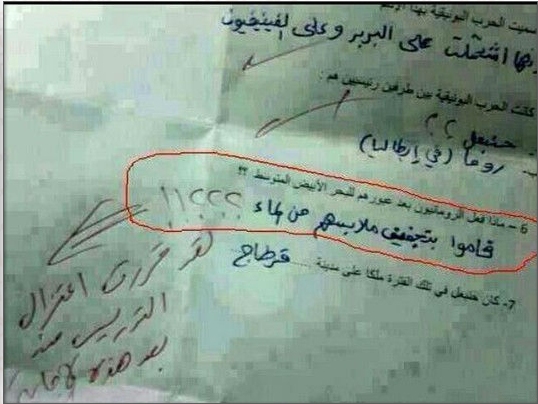 سميت الحرب البونيقية بهذا الاسم
لأنها اشتملت على البربر وعلى الفينيقيون
كانت الحرب البونيقية بين طرفين رئيسيين هم :
حنبعل ؟؟
روما (في إيطاليا)
6 – ماذا فعل الرومانيون بعد عبورهم للبحر الأبيض المتوسط ؟؟
قاموا بتجفيف ملابسهم من الماء ؟؟؟!!
7- كان حنبعل في تلك الفترة ملكا على مدينة ........ قرطاج
لقد قررت اعتزال
التدريس منذ
بعد هذه الإجابة